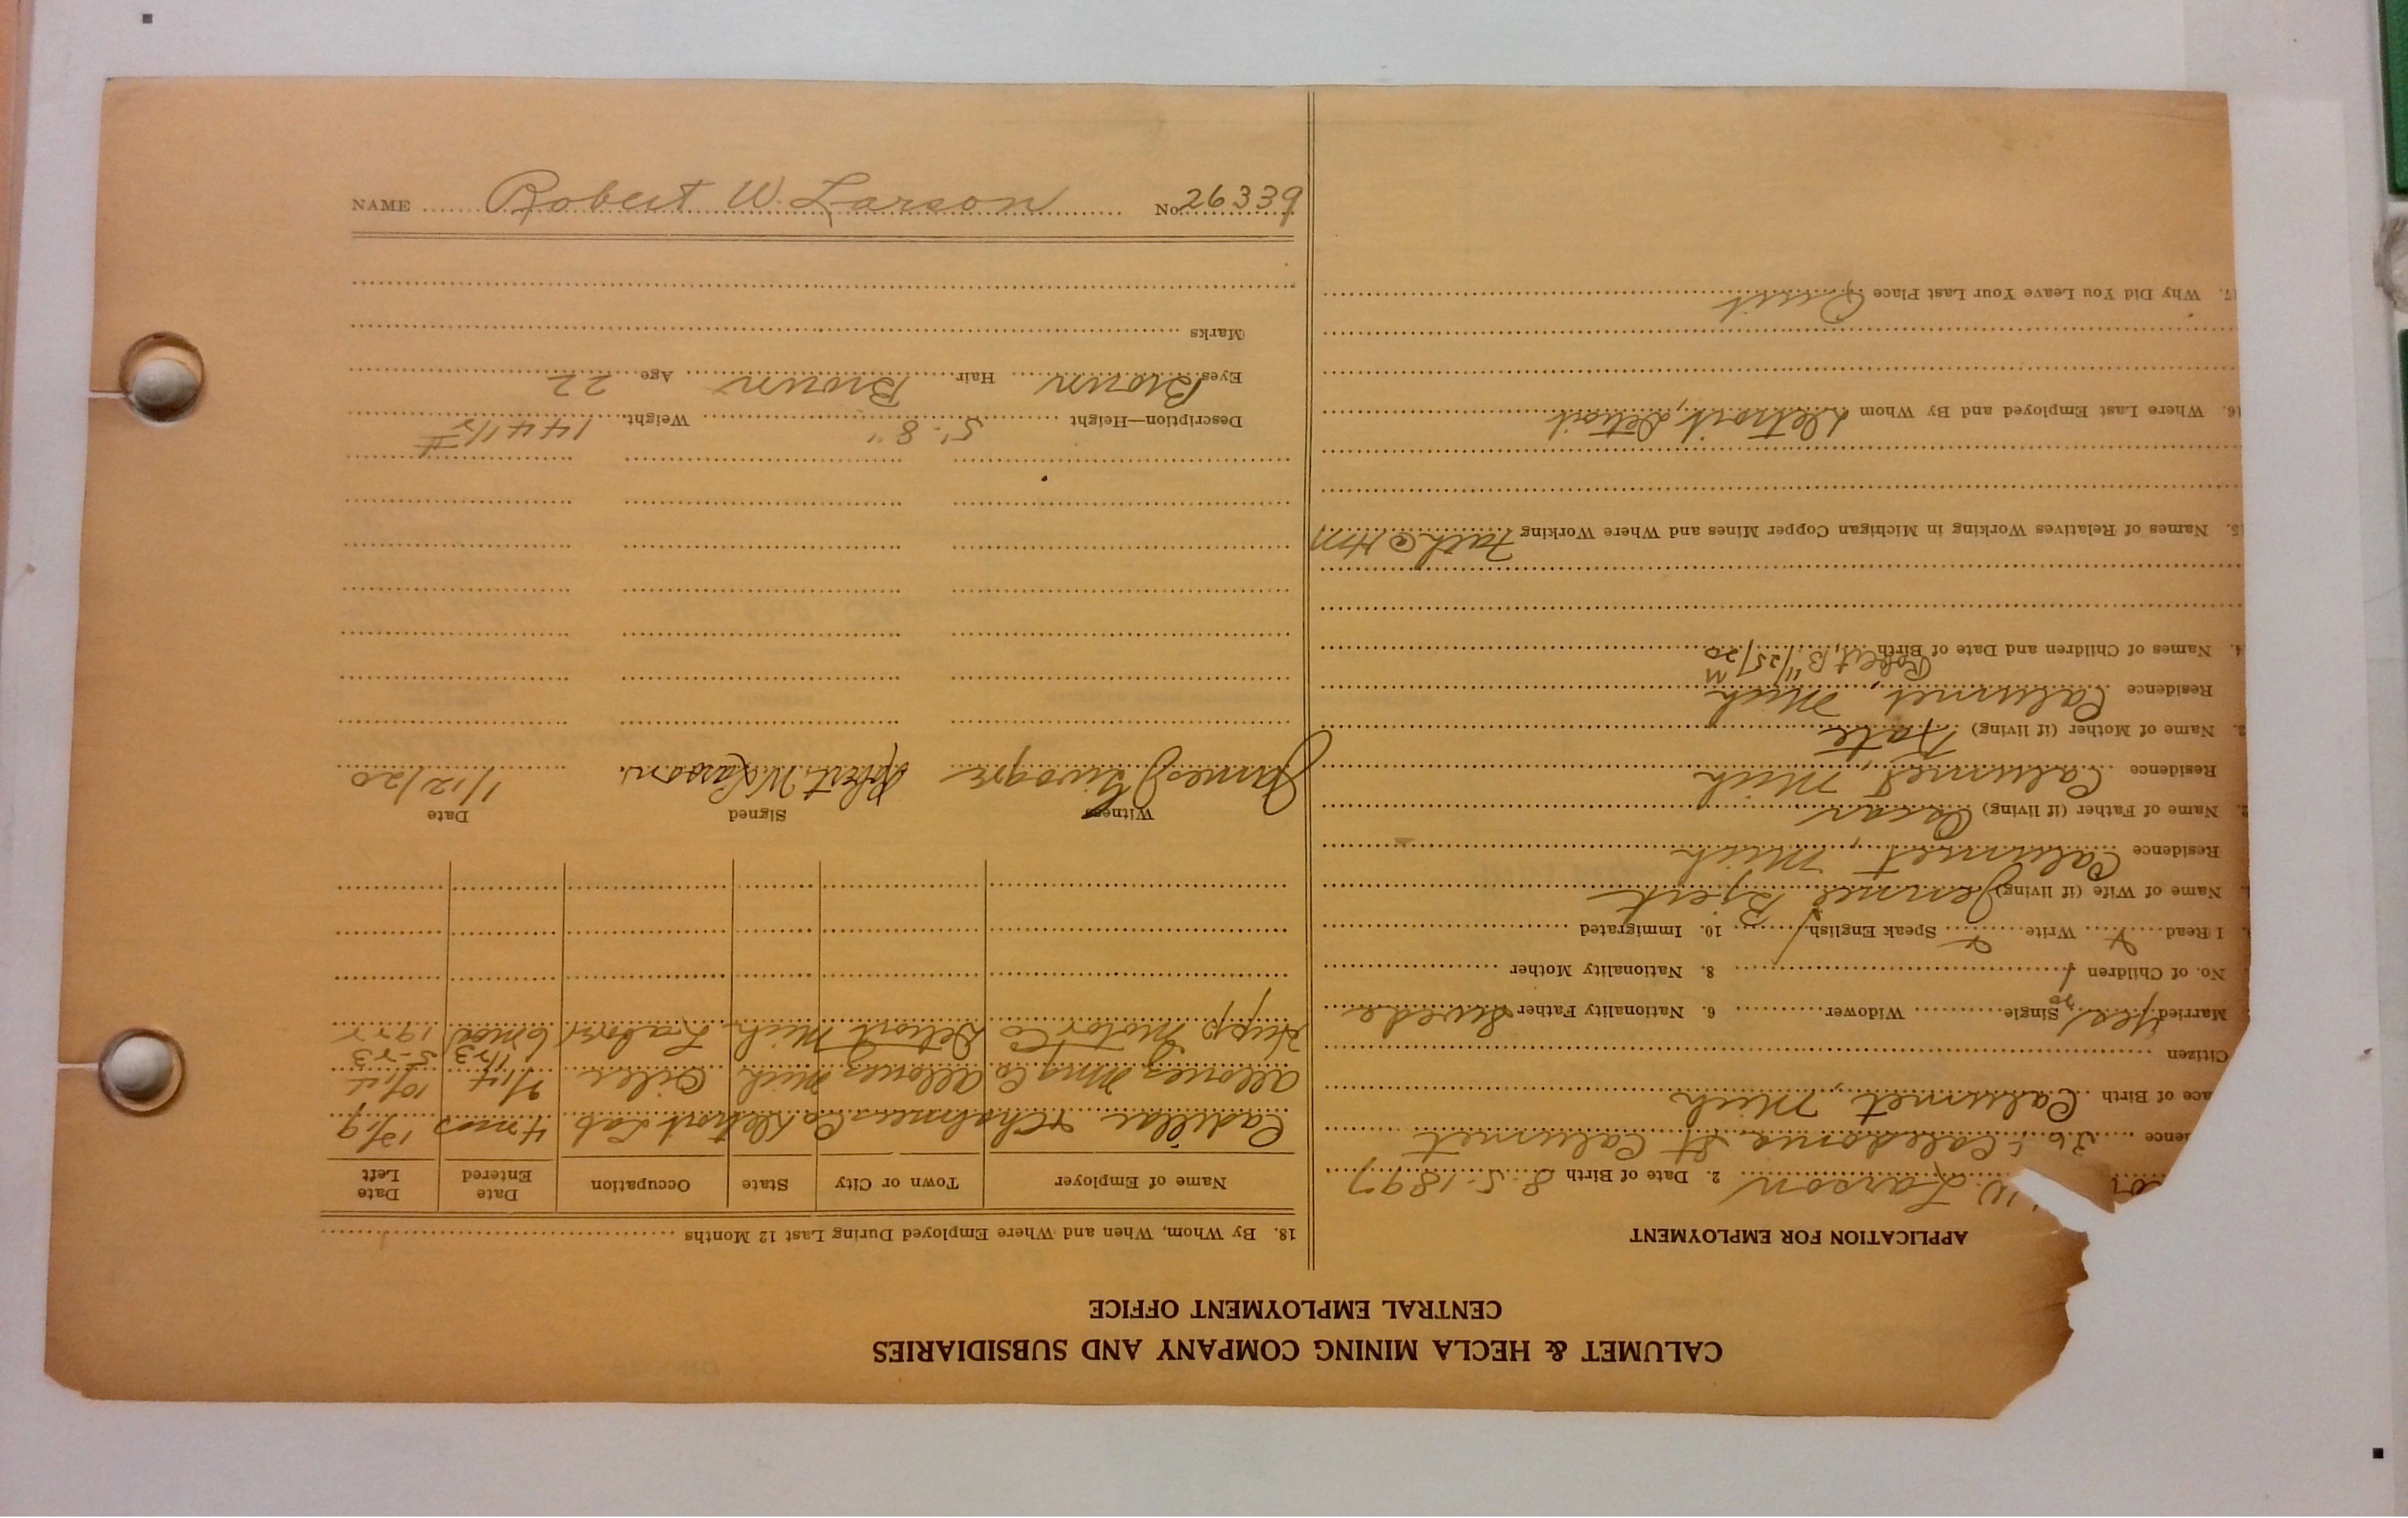 CALUMET & HECLA MINING COMPANY AND SUBSIDIARIES
CENTRAL EMPLOYMENT OFFICE
APPLICATION FOR EMPLOYMENT
W. Larson 2. Date of Birth 8. 5. 1897
ence Caledonia St Calumet
ace of Birth Calumet, Mich
Citizen
Married Yes Single no Widower 6. Nationality Father Swede
No. of Children 1 8. Nationality Mother
I Read Write Speak English 10. Immigrated
Name of Wife (if living) Jennie
Residence Calumet, Mich
2. Name of Father (if living) Oscar
Residence Calumet, Mich
3. Name of Mother (if living) Kate
Residence Calumet, Mich
4. Names of Children and Date of Birth Robert B 11/25/20 M
5. Names of Relatives Working in Michigan Copper Mines and Where Working Fath @
16. Where Last Employed and By Whom Detroit, Detroit
17. Why Did You Leave Your Last Place Quit
18. By Whom, When and Where Employed During Last 12 Months
Name of Employer Town or City State Occupation Date Entered Date Left
Cadillac & Chalmers Co Detroit Lab 4 mos 12/19
Allouez Mng Co Allouez Mich Oiler
Hupp Motor Co Detroit Mich Labor 6 mos 1922
Witness Signed Date
James Robert W. Larson. 1/12/20
Description—Height 5'. 8" Weight 144 lbs
Eyes Brown Hair Brown Age 22
Marks
NAME Robert W. Larson No. 26339